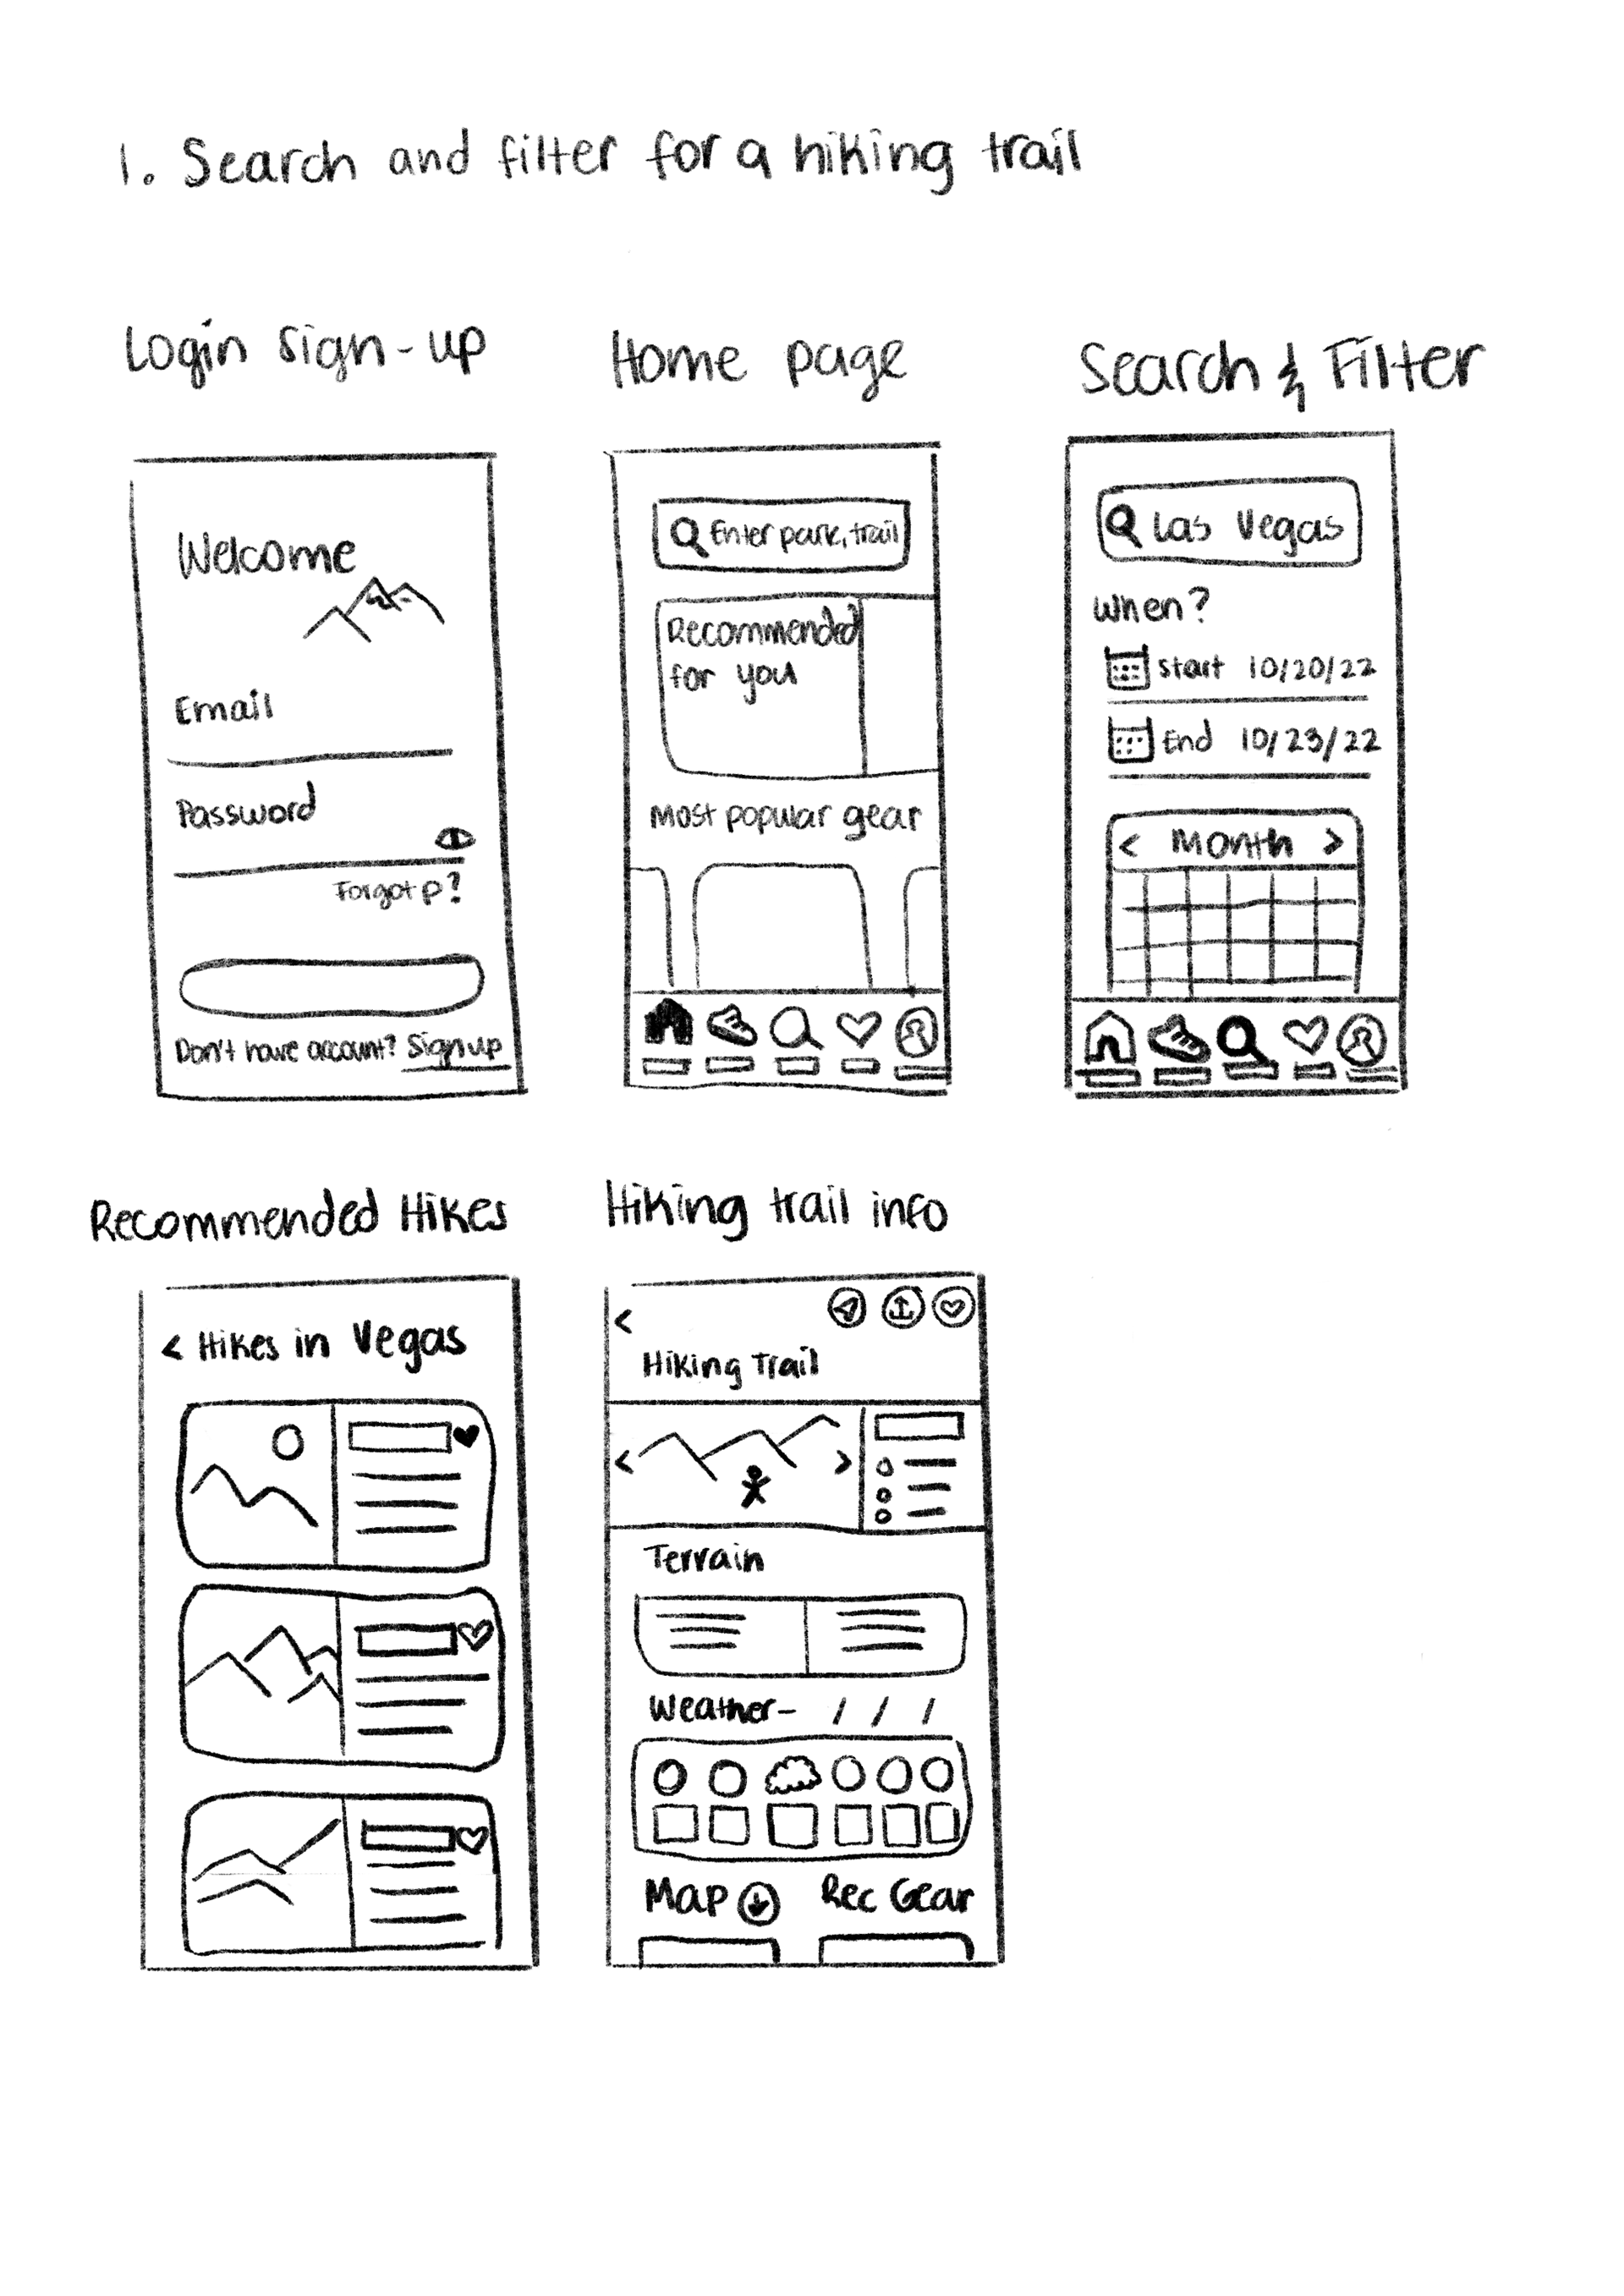 1. Search and filter for a hiking trail
Login sign-up
Welcome
Email
Password
Forgot p?
Don't have account? Sign up
Home page
Enter park, trail
Recommended
for you
Most popular gear
Search & Filter
Las Vegas
When?
Start 10/20/22
End 10/23/22
< Month >
Recommended Hikes
< Hikes in Vegas
Hiking trail info
<
Hiking Trail
< >
Terrain
Weather- / / /
Map Rec Gear